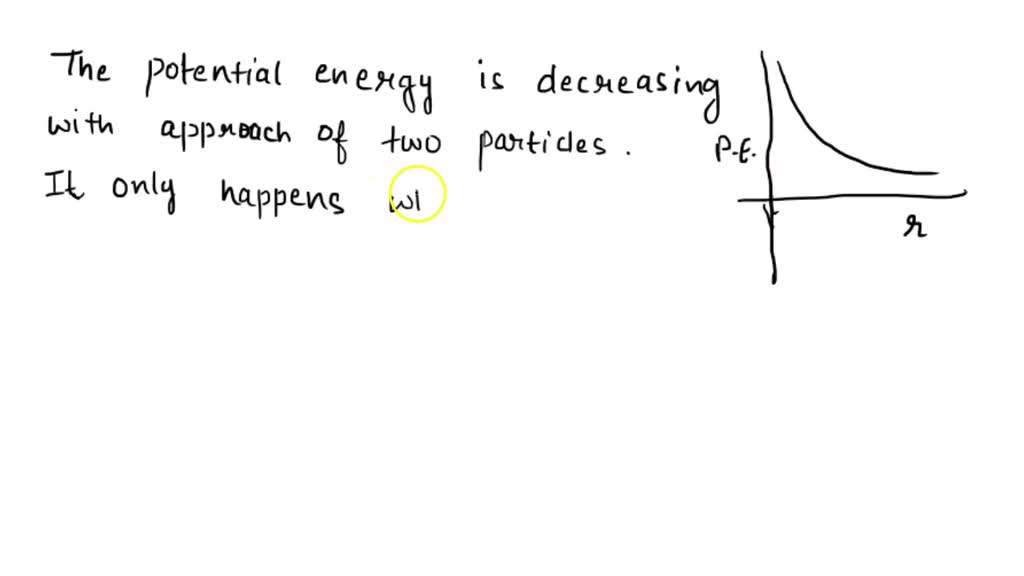 The potential energy is decreasing
with approach of two particles.
It only happens wi
P.E.
r